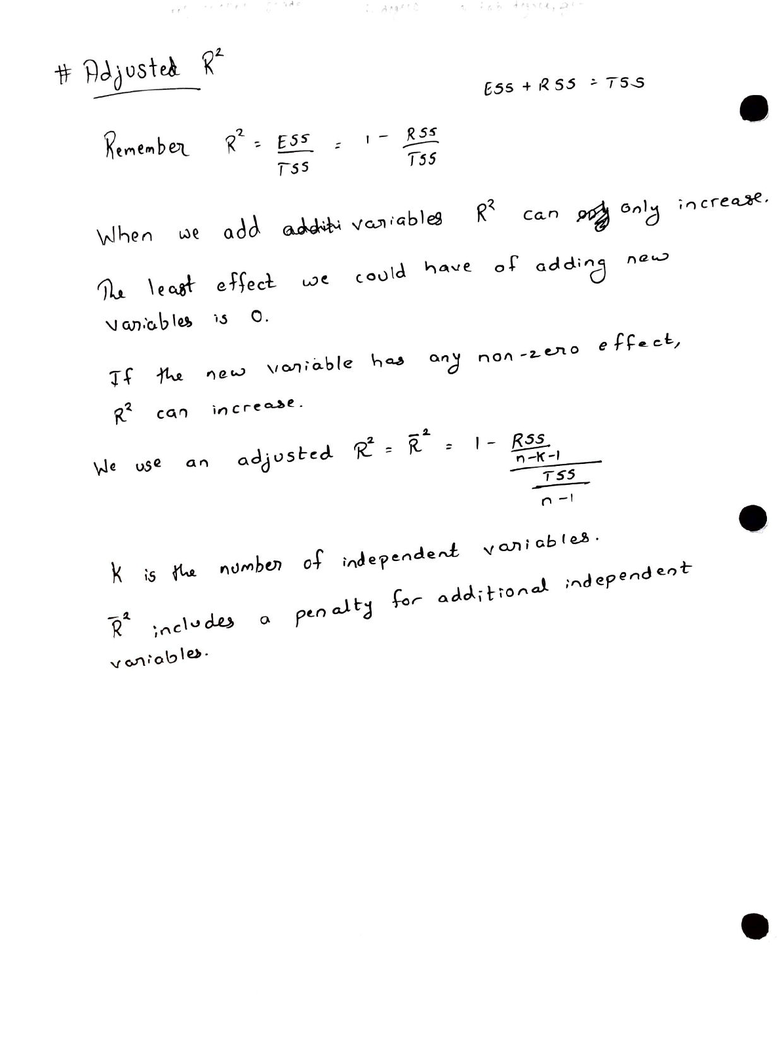 # Adjusted R²
ESS + RSS = TSS
Remember R² = ESS/TSS = 1 - RSS/TSS
When we add additi variables R² can only increase.
The least effect we could have of adding new
variables is 0.
If the new variable has any non-zero effect,
R² can increase.
We use an adjusted R² = R̄² = 1 - (RSS/(n-K-1))/(TSS/(n-1))
K is the number of independent variables.
R̄² includes a penalty for additional independent
variables.